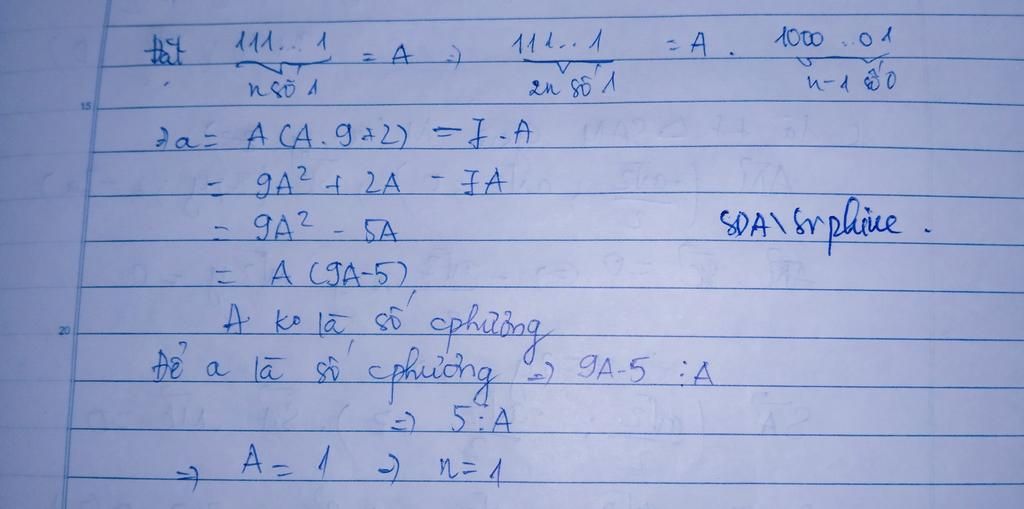 Đặt 111...1 = A => 111...1 = A . 1000...01
n số 1 2n số 1 n-1 số 0
15
=> a = A(A.9+2) - 7.A
= 9A² + 2A - 7A
= 9A² - 5A
SDA\Srphine.
= A(9A-5)
A ko là số cphương
20
Để a là số cphương => 9A-5 ⋮ A
=> 5 ⋮ A
=> A = 1 => n = 1